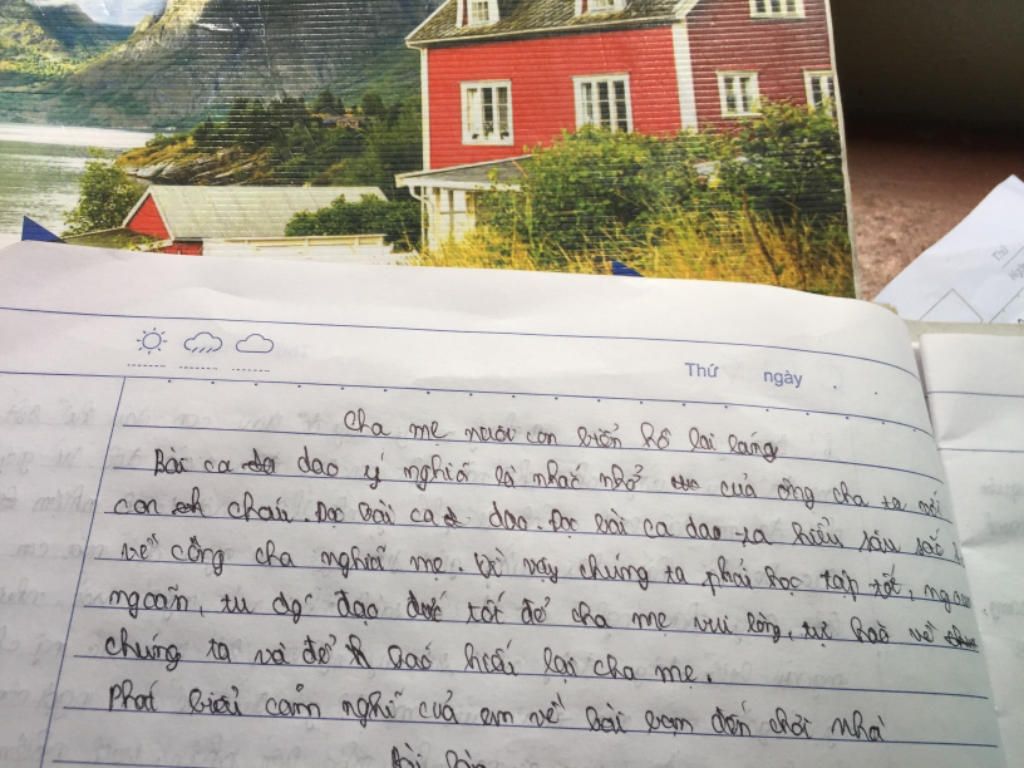 Thứ ngày
Cha mẹ nuôi con biển hồ lai láng
Bài ca dao ý nghĩa là nhắc nhở của ông cha ta với
con cháu. Đọc bài ca dao. Đọc bài ca dao ta hiểu sâu sắc
về công cha nghĩa mẹ. Vì vậy chúng ta phải học tập tốt, ngoan
ngoãn, tu đạo đức tốt để cha mẹ vui lòng, tự hào về
chúng ta và để báo hiếu lại cha mẹ.
Phát biểu cảm nghĩ của em về bài bạn đến chơi nhà
Bài làm